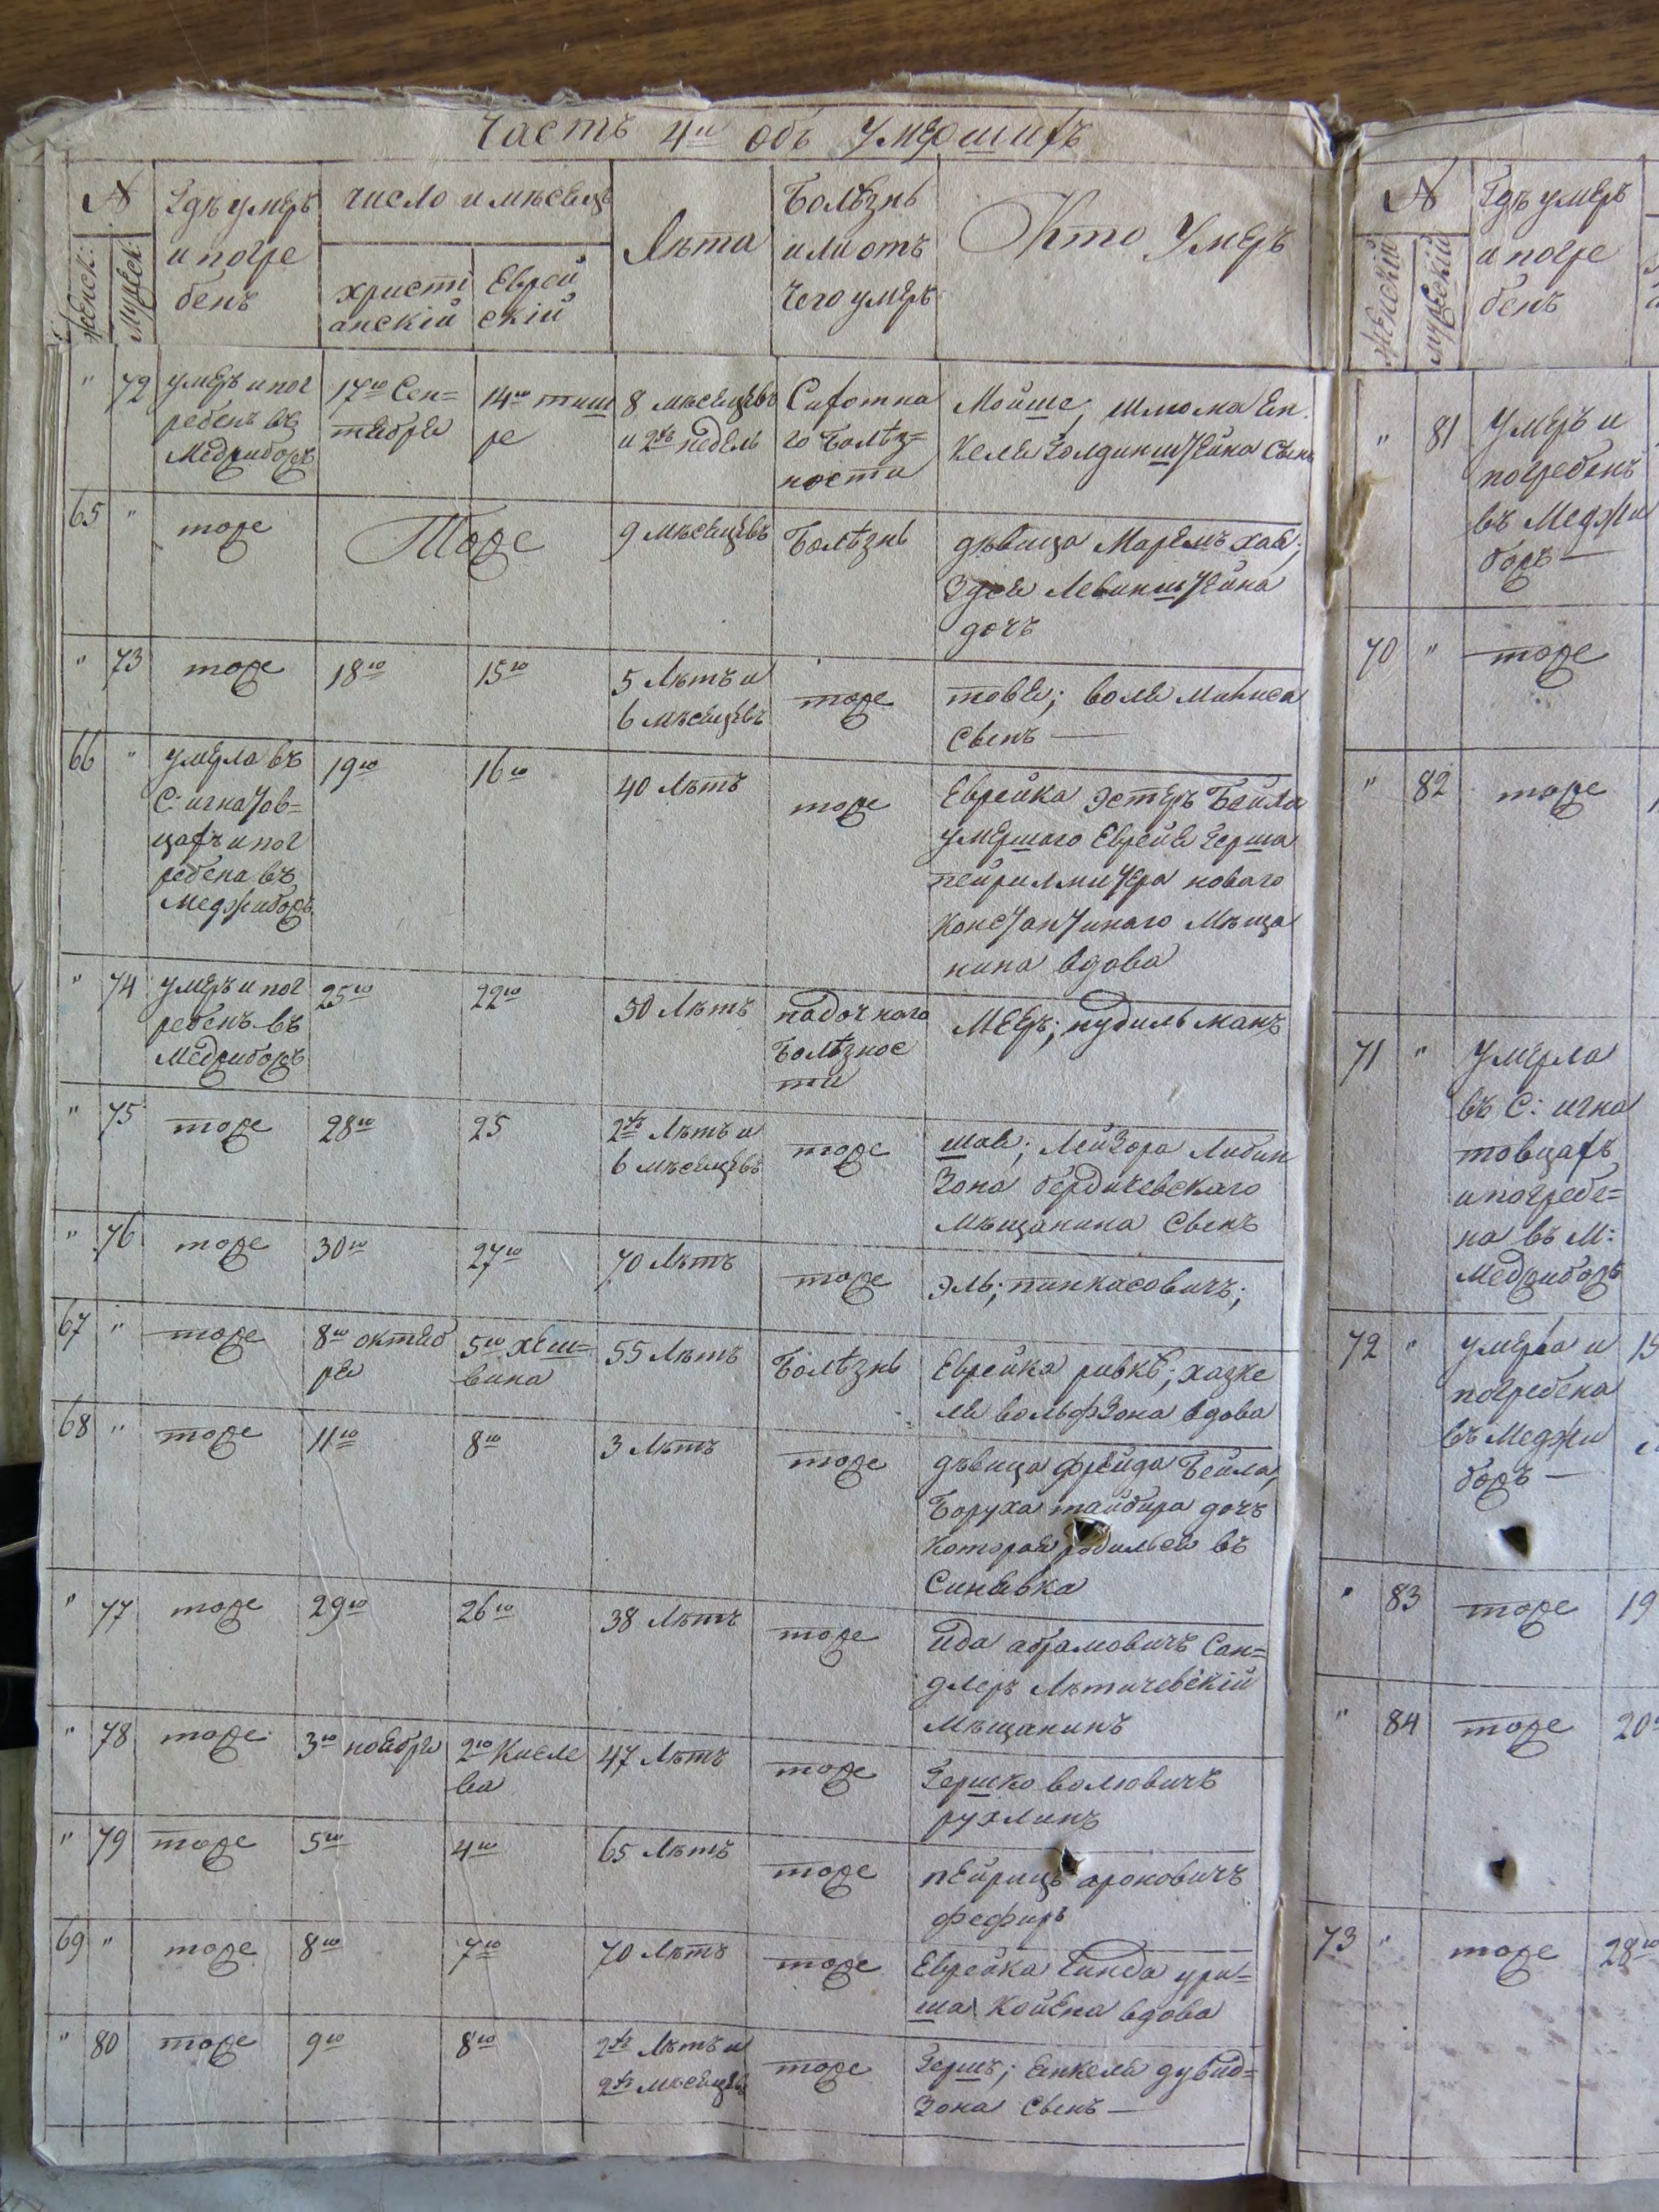 Часть 4я объ умершихъ
№
Женск:
Мужеск:
Гдѣ умеръ
и погре
бенъ
число и мѣсецъ
христі
анскій
Еврей
скій
Лѣта
Болѣзнь
или отъ
чего умеръ
Кто умеръ
" 72
умеръ и пог
ребенъ въ
Меджибожъ
17го Сен=
тября
14го тиш
ре
8 мѣсяцевъ
и 2хъ недель
Сухотна
го болѣз=
ности
Мойше; шлиома Ен
келя Голдинштейна Сынъ
65 "
тоже
Тоже
9 мѣсяцевъ
Болѣзнь
дѣвица Маремъ хая;
Левинштейна
дочъ
" 73
тоже
18го
15го
5 Лѣтъ и
6 мѣсяцевъ
тоже
товя; воля
Свенъ —
66 "
умерла въ
С: игнатов=
цахъ и пог
ребена въ
Меджибожъ
19го
16го
40 Лѣтъ
тоже
Еврейка эстеръ Бейла
умершаго Еврея Герша
новаго
константинаго Мѣща
нина вдова
" 74
умеръ и пог
ребенъ въ
Меджибожъ
25го
22го
50 Лѣтъ
падочнаго
болѣзнос
ти
Мееръ; нудильманъ
" 75
тоже
28го
25
2хъ Лѣтъ и
6 мѣсяцевъ
тоже
шая; Лейзора Либин
Зона бердичевскаго
Мѣщанина Свенъ
" 76
тоже
30го
27го
70 Лѣтъ
тоже
эль; пинкасовичъ;
67 "
тоже
8го октяб
ря
5го хеш=
вина
55 Лѣтъ
Болѣзнь
Еврейка ривкѣ; хазке
ля вольфзона вдова
68 "
тоже
11го
8го
3 Лѣтъ
тоже
дѣвица фрейда Бейла,
Боруха дочъ
которая родилься въ
Синявка
" 77
тоже
29го
26го
38 Лѣтъ
тоже
ида абрамовичъ Сан=
длеръ Лѣтичевскій
Мѣщанинъ
" 78
тоже
3го ноября
2го Кисле
ва
47 Лѣтъ
тоже
Гершко волювичъ
рухлинъ
" 79
тоже
5го
4го
65 Лѣтъ
тоже
пейрицъ ароновичъ
фефиръ
69 "
тоже
8го
7го
70 Лѣтъ
тоже
Еврейка Гинда ури=
ша Койена вдова
" 80
тоже
9го
8го
2хъ Лѣтъ и
2хъ мѣсяцевъ
тоже
Гершъ; Енкеля дувид=
Зона Свенъ —
№
Женскій
мужескій
Гдѣ умеръ
и погре
бенъ
" 81
умеръ и
погребенъ
въ Меджи
божъ —
70 "
тоже
" 82
тоже
71 "
умерла
въ С: игна
товцахъ
и погребе=
на въ М:
Меджибожъ
72 "
умерла и
погребена
въ Меджи
божъ —
" 83
тоже
19
" 84
тоже
20
73 "
тоже
28го